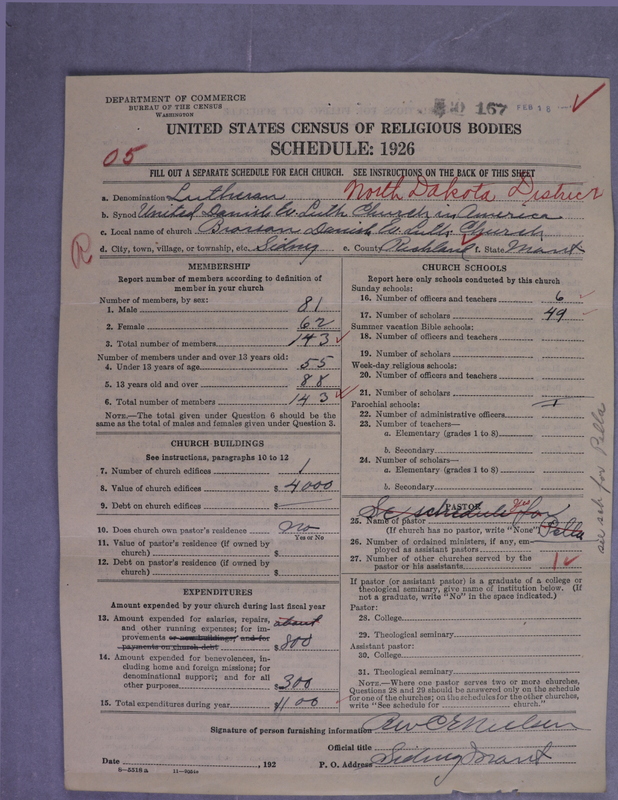 DEPARTMENT OF COMMERCE
BUREAU OF THE CENSUS
WASHINGTON
167 FEB 18
UNITED STATES CENSUS OF RELIGIOUS BODIES
SCHEDULE: 1926
05
FILL OUT A SEPARATE SCHEDULE FOR EACH CHURCH. SEE INSTRUCTIONS ON THE BACK OF THIS SHEET
North Dakota District
a. Denomination Lutheran
b. Synod United Danish Ev. Luth Church in America
c. Local name of church Brorson Danish Ev. Luth. Church
R
d. City, town, village, or township, etc. Sidney e. County Richland f. State Mont
MEMBERSHIP
Report number of members according to definition of
member in your church
Number of members, by sex:
1. Male 81
2. Female 62
3. Total number of members 143
Number of members under and over 13 years old:
4. Under 13 years of age 55
5. 13 years old and over 88
6. Total number of members 143
NOTE.—The total given under Question 6 should be
same as the total of males and females given under Question 3.
CHURCH BUILDINGS
See instructions, paragraphs 10 to 12
7. Number of church edifices 1
8. Value of church edifices $ 4000
9. Debt on church edifices $
10. Does church own pastor's residence no
Yes or No
11. Value of pastor's residence (if owned by
church) $
12. Debt on pastor's residence (if owned by
church) $
EXPENDITURES
Amount expended by your church during last fiscal year
13. Amount expended for salaries, repairs, about
and other running expenses; for im-
provements or new buildings; and for
payments on church debt $ 800
14. Amount expended for benevolences, in-
cluding home and foreign missions; for
denominational support; and for all
other purposes $ 300
15. Total expenditures during year $ 1100
CHURCH SCHOOLS
Report here only schools conducted by this church
Sunday schools:
16. Number of officers and teachers 6
17. Number of scholars 49
Summer vacation Bible schools:
18. Number of officers and teachers
19. Number of scholars
Week-day religious schools:
20. Number of officers and teachers
21. Number of scholars
Parochial schools:
22. Number of administrative officers
23. Number of teachers—
a. Elementary (grades 1 to 8)
b. Secondary
24. Number of scholars—
a. Elementary (grades 1 to 8)
b. Secondary
PASTOR
Se schedule for
yes
25. Name of pastor
(If church has no pastor, write "None") Pella
26. Number of ordained ministers, if any, em-
ployed as assistant pastors
27. Number of other churches served by the
pastor or his assistants 1
If pastor (or assistant pastor) is a graduate of a college or
theological seminary, give name of institution below. (If
not a graduate, write "No" in the space indicated.)
Pastor:
28. College
29. Theological seminary
Assistant pastor:
30. College
31. Theological seminary
NOTE.—Where one pastor serves two or more churches,
Questions 28 and 29 should be answered only on the schedule
for one of the churches; on the schedules for the other churches,
write "See schedule for church."
see sch for Pella
Signature of person furnishing information Rev C E Nielsen
Official title
Date , 192 P. O. Address Sidney Mont
8—5518a 11—9851